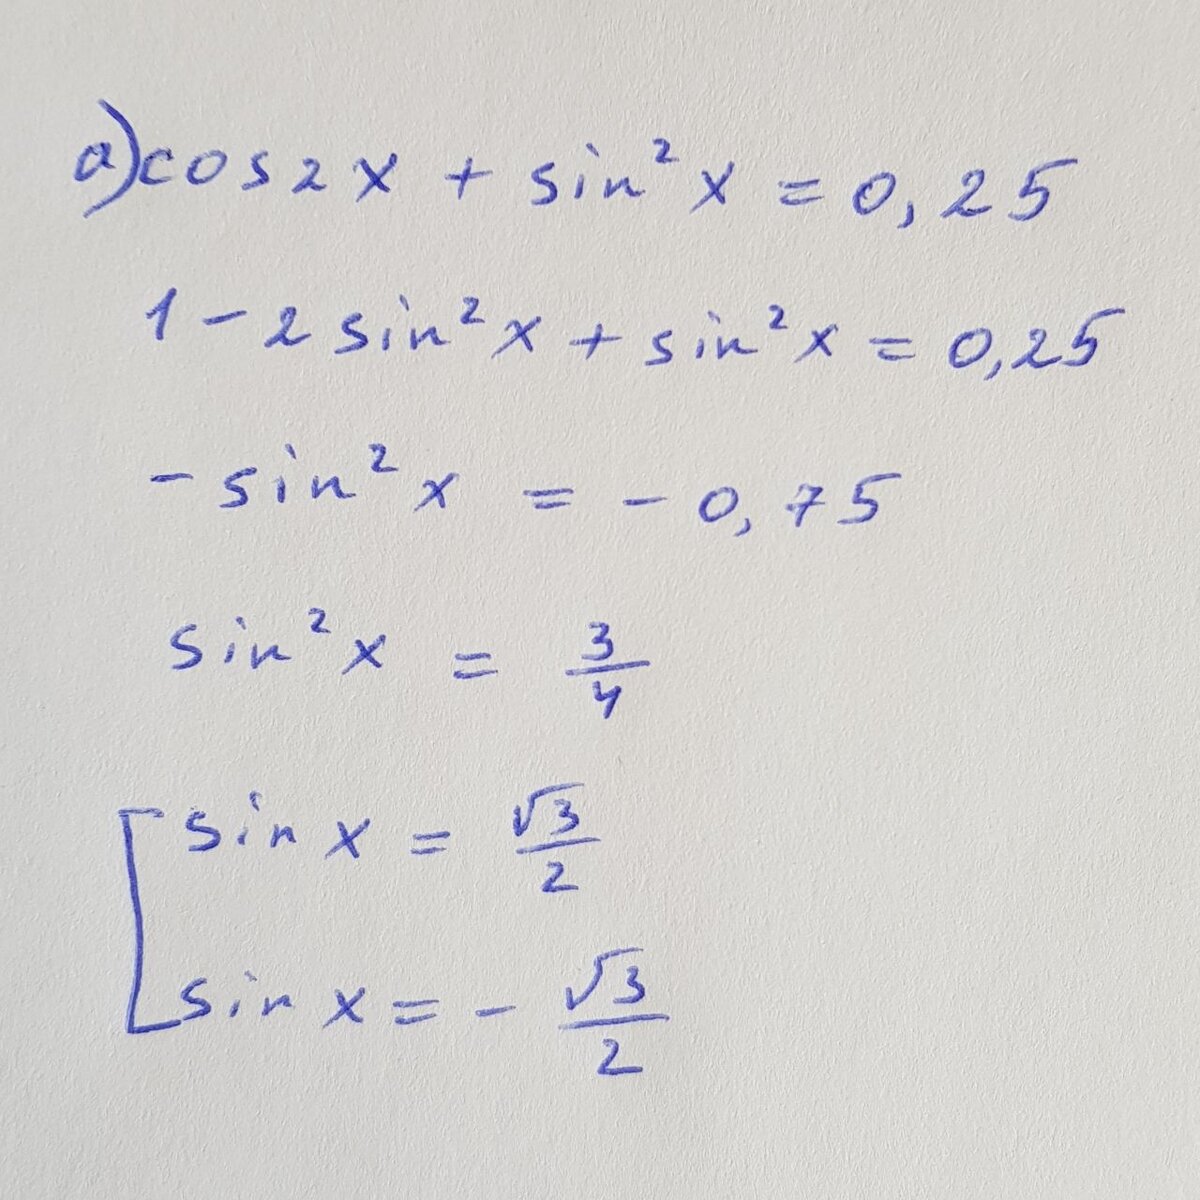 a) cos2x + sin²x = 0,25
1 - 2 sin²x + sin²x = 0,25
- sin²x = - 0,75
sin²x = 3/4
[ sin x = √3/2
sin x = - √3/2